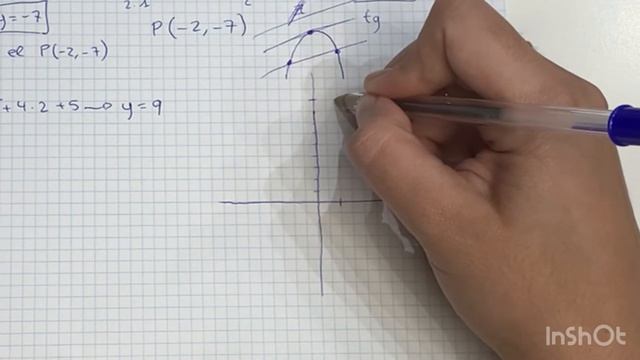 y = -7
2·1
P(-2,-7)
tg
el P(-2,-7)
+4·2 +5 → y = 9
InShOt